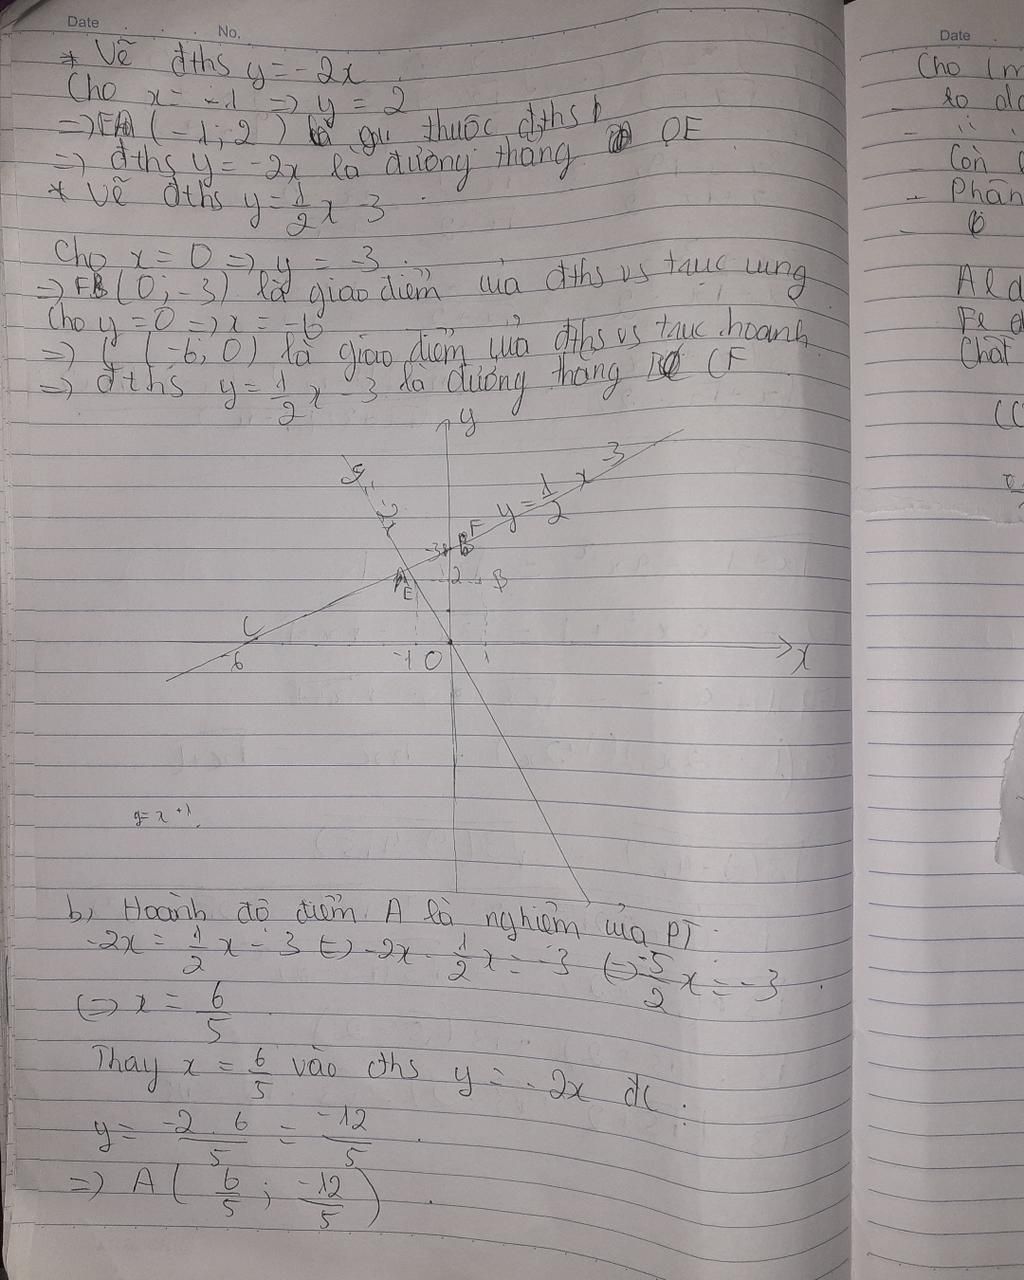 Date No.
* Vẽ đths y = -2x
Cho x = -1 => y = 2
=> (-1; 2) thuộc đths
=> đths y = -2x là đường thẳng OE
* Vẽ đths y = 1/2 x - 3
Cho x = 0 => y = -3
=> F (0; -3) là giao điểm của đths vs trục tung
Cho y = 0 => x = -6
=> C (-6; 0) là giao điểm của đths vs trục hoành
=> đths y = 1/2 x - 3 là đường thẳng CF
y
y = 1/2 x - 3
F
-3 B
2 B
A
E
C
-6 -1 O 1 x
y = x + 1
b, Hoành độ điểm A là nghiệm của PT
-2x = 1/2 x - 3 <=> -2x - 1/2 x = -3 <=> -5/2 x = -3
<=> x = 6/5
Thay x = 6/5 vào đths y = -2x đc :
y = -2 . 6/5 = -12/5
=> A ( 6/5 ; -12/5 )
Date
Cho
-
-
- Còn
- Phân
-
Al
Fe
Chất